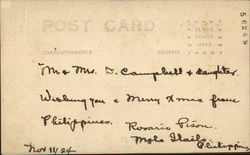 POST CARD
56249
PLACE
STAMP
HERE
CORRESPONDENCE
ADDRESS
Mr & Mrs. D. Campbell & daughter.
Wishing you a Merry Xmas from
Philippines.
Rosario Pison.
Molo Iloilo.
Philippine
Nov 11/24